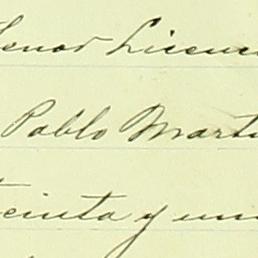 Senor Licenc
Pablo Mart
treinta y un